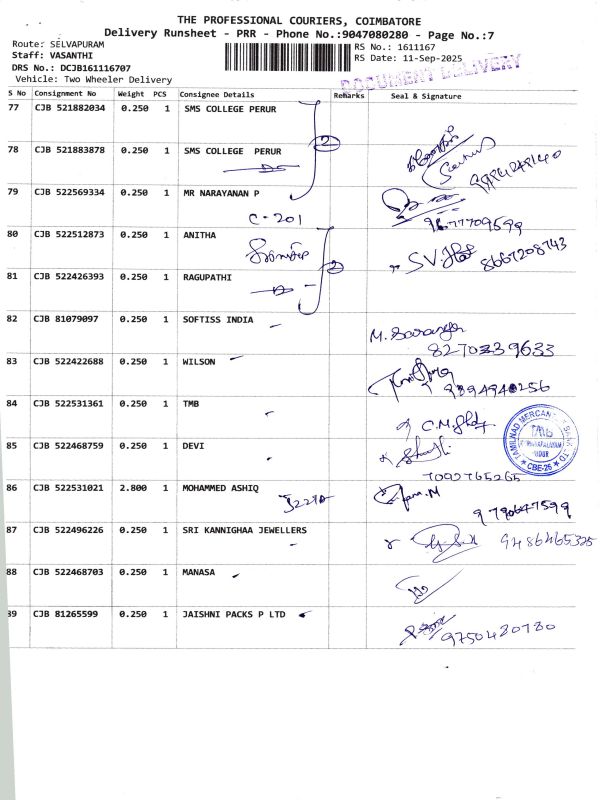 THE PROFESSIONAL COURIERS, COIMBATORE
Delivery Runsheet - PRR - Phone No.:9047080280 - Page No.:7
Route: SELVAPURAM
Staff: VASANTHI
DRS No.: DCJB161116707
Vehicle: Two Wheeler Delivery
RS No.: 1611167
RS Date: 11-Sep-2025
DOCUMENT DELIVERY
S No Consignment No Weight PCS Consignee Details Remarks Seal & Signature
77 CJB 521882034 0.250 1 SMS COLLEGE PERUR
2
78 CJB 521883878 0.250 1 SMS COLLEGE PERUR
79 CJB 522569334 0.250 1 MR NARAYANAN P
C-201
9677709599
80 CJB 522512873 0.250 1 ANITHA
2
S.V. 8667208743
81 CJB 522426393 0.250 1 RAGUPATHI
82 CJB 81079097 0.250 1 SOFTISS INDIA
M.
8270339633
83 CJB 522422688 0.250 1 WILSON
9894940256
84 CJB 522531361 0.250 1 TMB
C.M.
TAMILNAD MERCANTILE BANK LTD
TMB
CBE-26
85 CJB 522468759 0.250 1 DEVI
7092765265
86 CJB 522531021 2.800 1 MOHAMMED ASHIQ
9790647599
87 CJB 522496226 0.250 1 SRI KANNIGHAA JEWELLERS
9486465325
88 CJB 522468703 0.250 1 MANASA
89 CJB 81265599 0.250 1 JAISHNI PACKS P LTD
9750430780